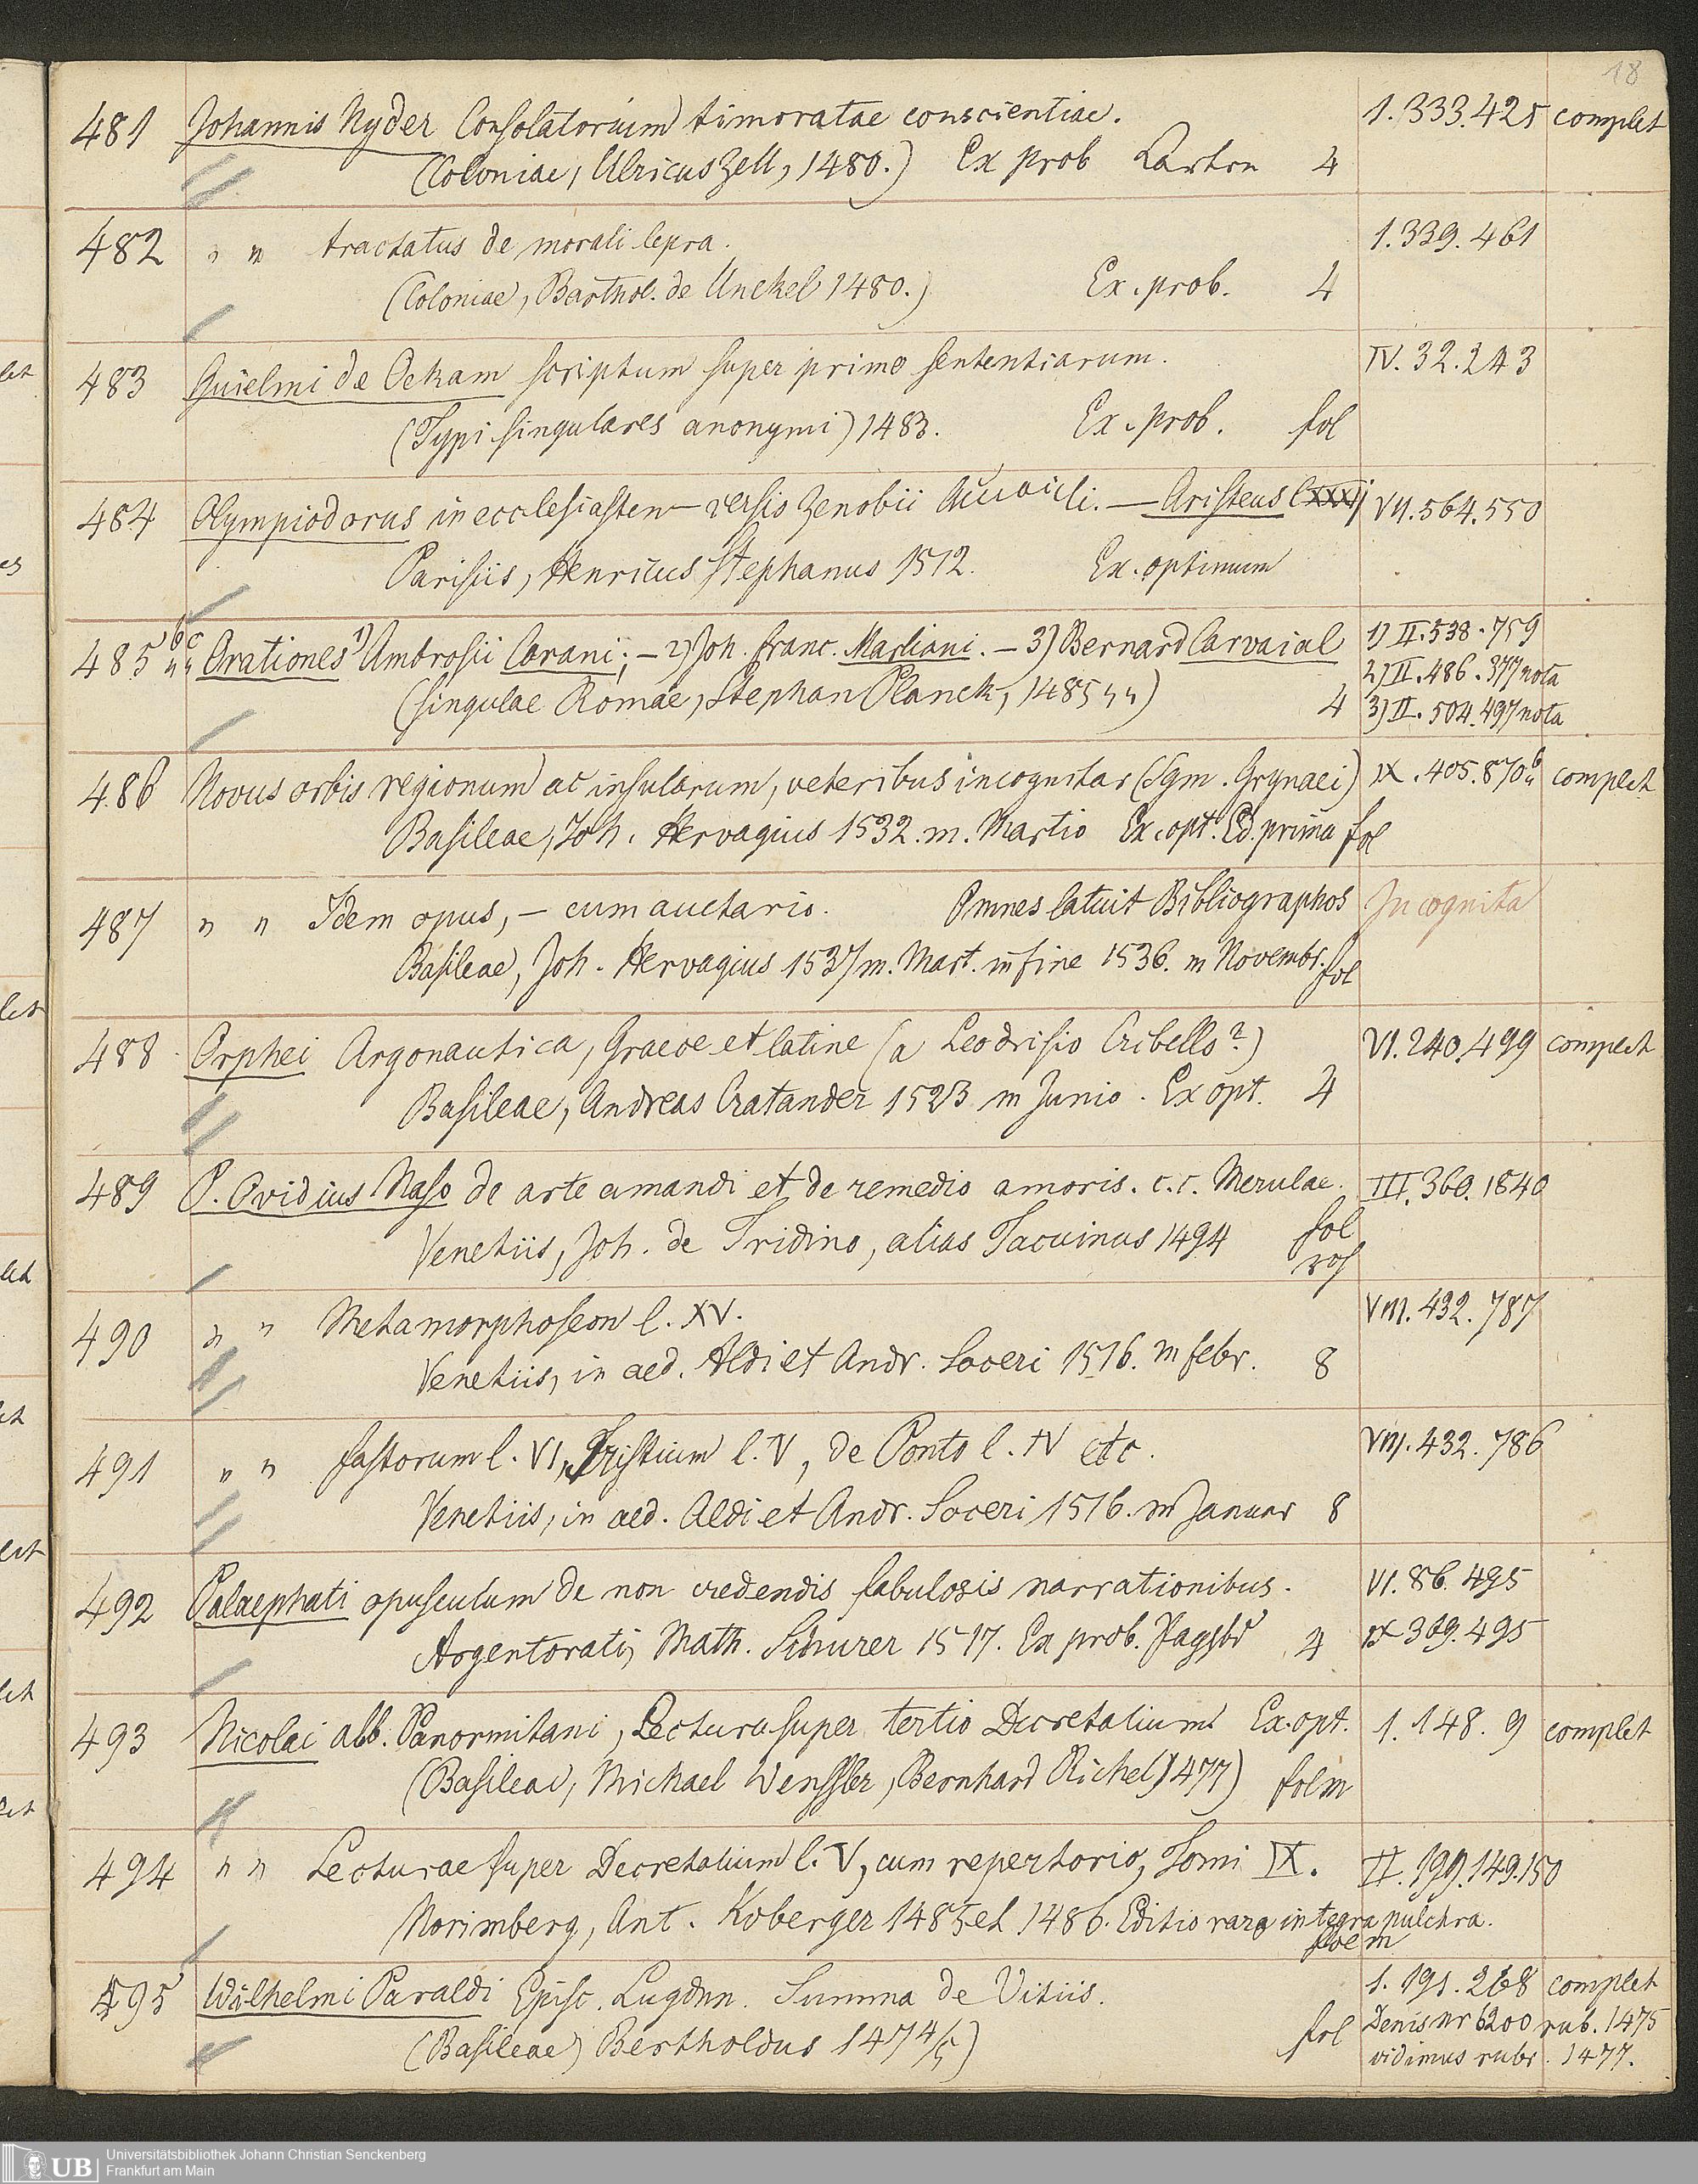 18
481 Johannis Nyder Consolatorium timoratae conscientiae. 1.333.425 complet
(Coloniae, Ulricus Zell, 1480.) Ex prob Carton 4
482 " " tractatus de morali lepra. 1.339.461
(Coloniae, Barthol. de Unckel 1480.) Ex. prob. 4
483 Guielmi de Ockam scriptum super primo sententiarum. IV. 32.243
(Typi singulares anonymi) 1483. Ex. prob. fol
484 Olympiodorus in ecclesiasten – versio Zenobii – Aristeus VII.564.550
Parisiis, Henricus Stephanus 1512. Ex. optimum
485 b c " " Orationes 1) Ambrosii Corani; – 2) Joh. Franc. Marliani. – 3) Bernard Carvaial 1) II.538.759
2) II.486.377 nota
(singulae Romae, Stephan Planck, 1485 " ") 4 3) II.504.497 nota
486 Novus orbis regionum ac insularum, veteribus incognitar (Sym. Grynaei) IX.405.870 b complect
Basileae, Joh. Hervagius 1532. m. Martio Ex. opt. Ed. prima fol
487 " " Idem opus, – cum auctario. Omnes latuit Bibliographos Incognita
Basileae, Joh. Hervagius 1537 m. Mart. in fine 1536. m Novembr. fol
488 Orphei Argonautica, Graece et latine (a Leodrisio Cribello?) VI.240.499 complect
Basileae, Andreas Cratander 1523 m Junio. Ex opt. 4
489 P. Ovidius Naso de arte amandi et de remedio amoris. c.c. Merulae. III.360.1840
Venetiis, Joh. de Tridino, alias Tacuinus 1494 fol
490 " " Metamorphoseon l. XV. VIII.432.787
Venetiis, in aed. Aldi et Andr. Soceri 1516. m febr. 8
491 " " fastorum l. VI, Tristium l. V, de Ponto l. IV etc. VIII.432.786
Venetiis, in aed. Aldi et Andr. Soceri 1516. m Januar 8
492 Palaephati opusculum de non credendis fabulosis narrationibus. VI.86.495
Argentorati, Math. Schurer 1517. Ex prob. 4 IX 369.495
493 Nicolai abb. Panormitani, Lectura super tertio Decretalium Ex. opt. 1.148.9 complet
(Basileae, Michael Wenssler, Bernhard Richel 1477) fol m
494 " " Lecturae super Decretalium l. V, cum repertorio, Tomi IX. II.199.149.150
Norimberg, Ant. Koberger 1485 et 1486. Editio rara integra pulchra.
fol m
495 Wilhelmi Paraldi Episc. Lugdun. Summa de Vitiis. 1.191.268 complet
fol Denis nr 6200 rub. 1475
(Basileae) Bertholdus 1474/5) vidimus rubr. 1477.
UB Universitätsbibliothek Johann Christian Senckenberg
Frankfurt am Main